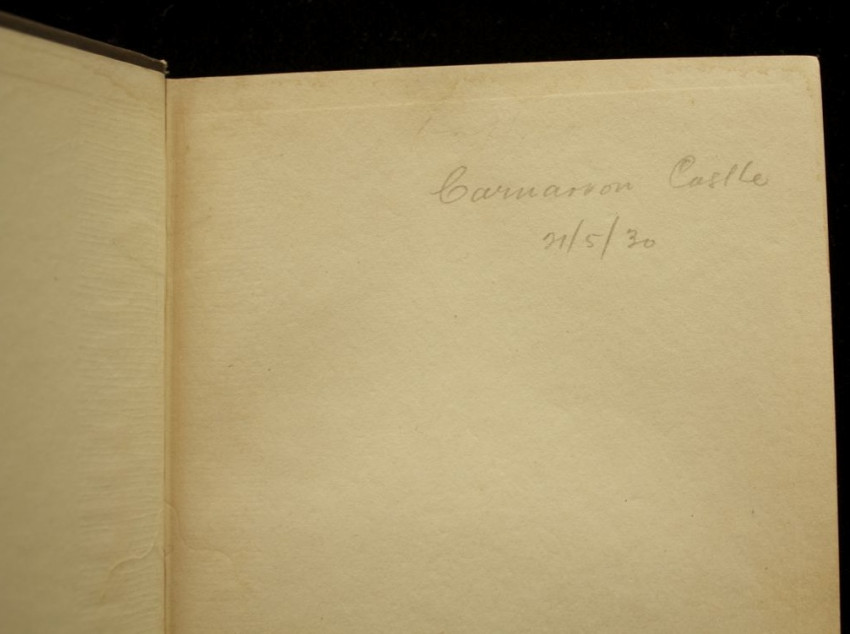 Carnarvon Castle
21/5/30